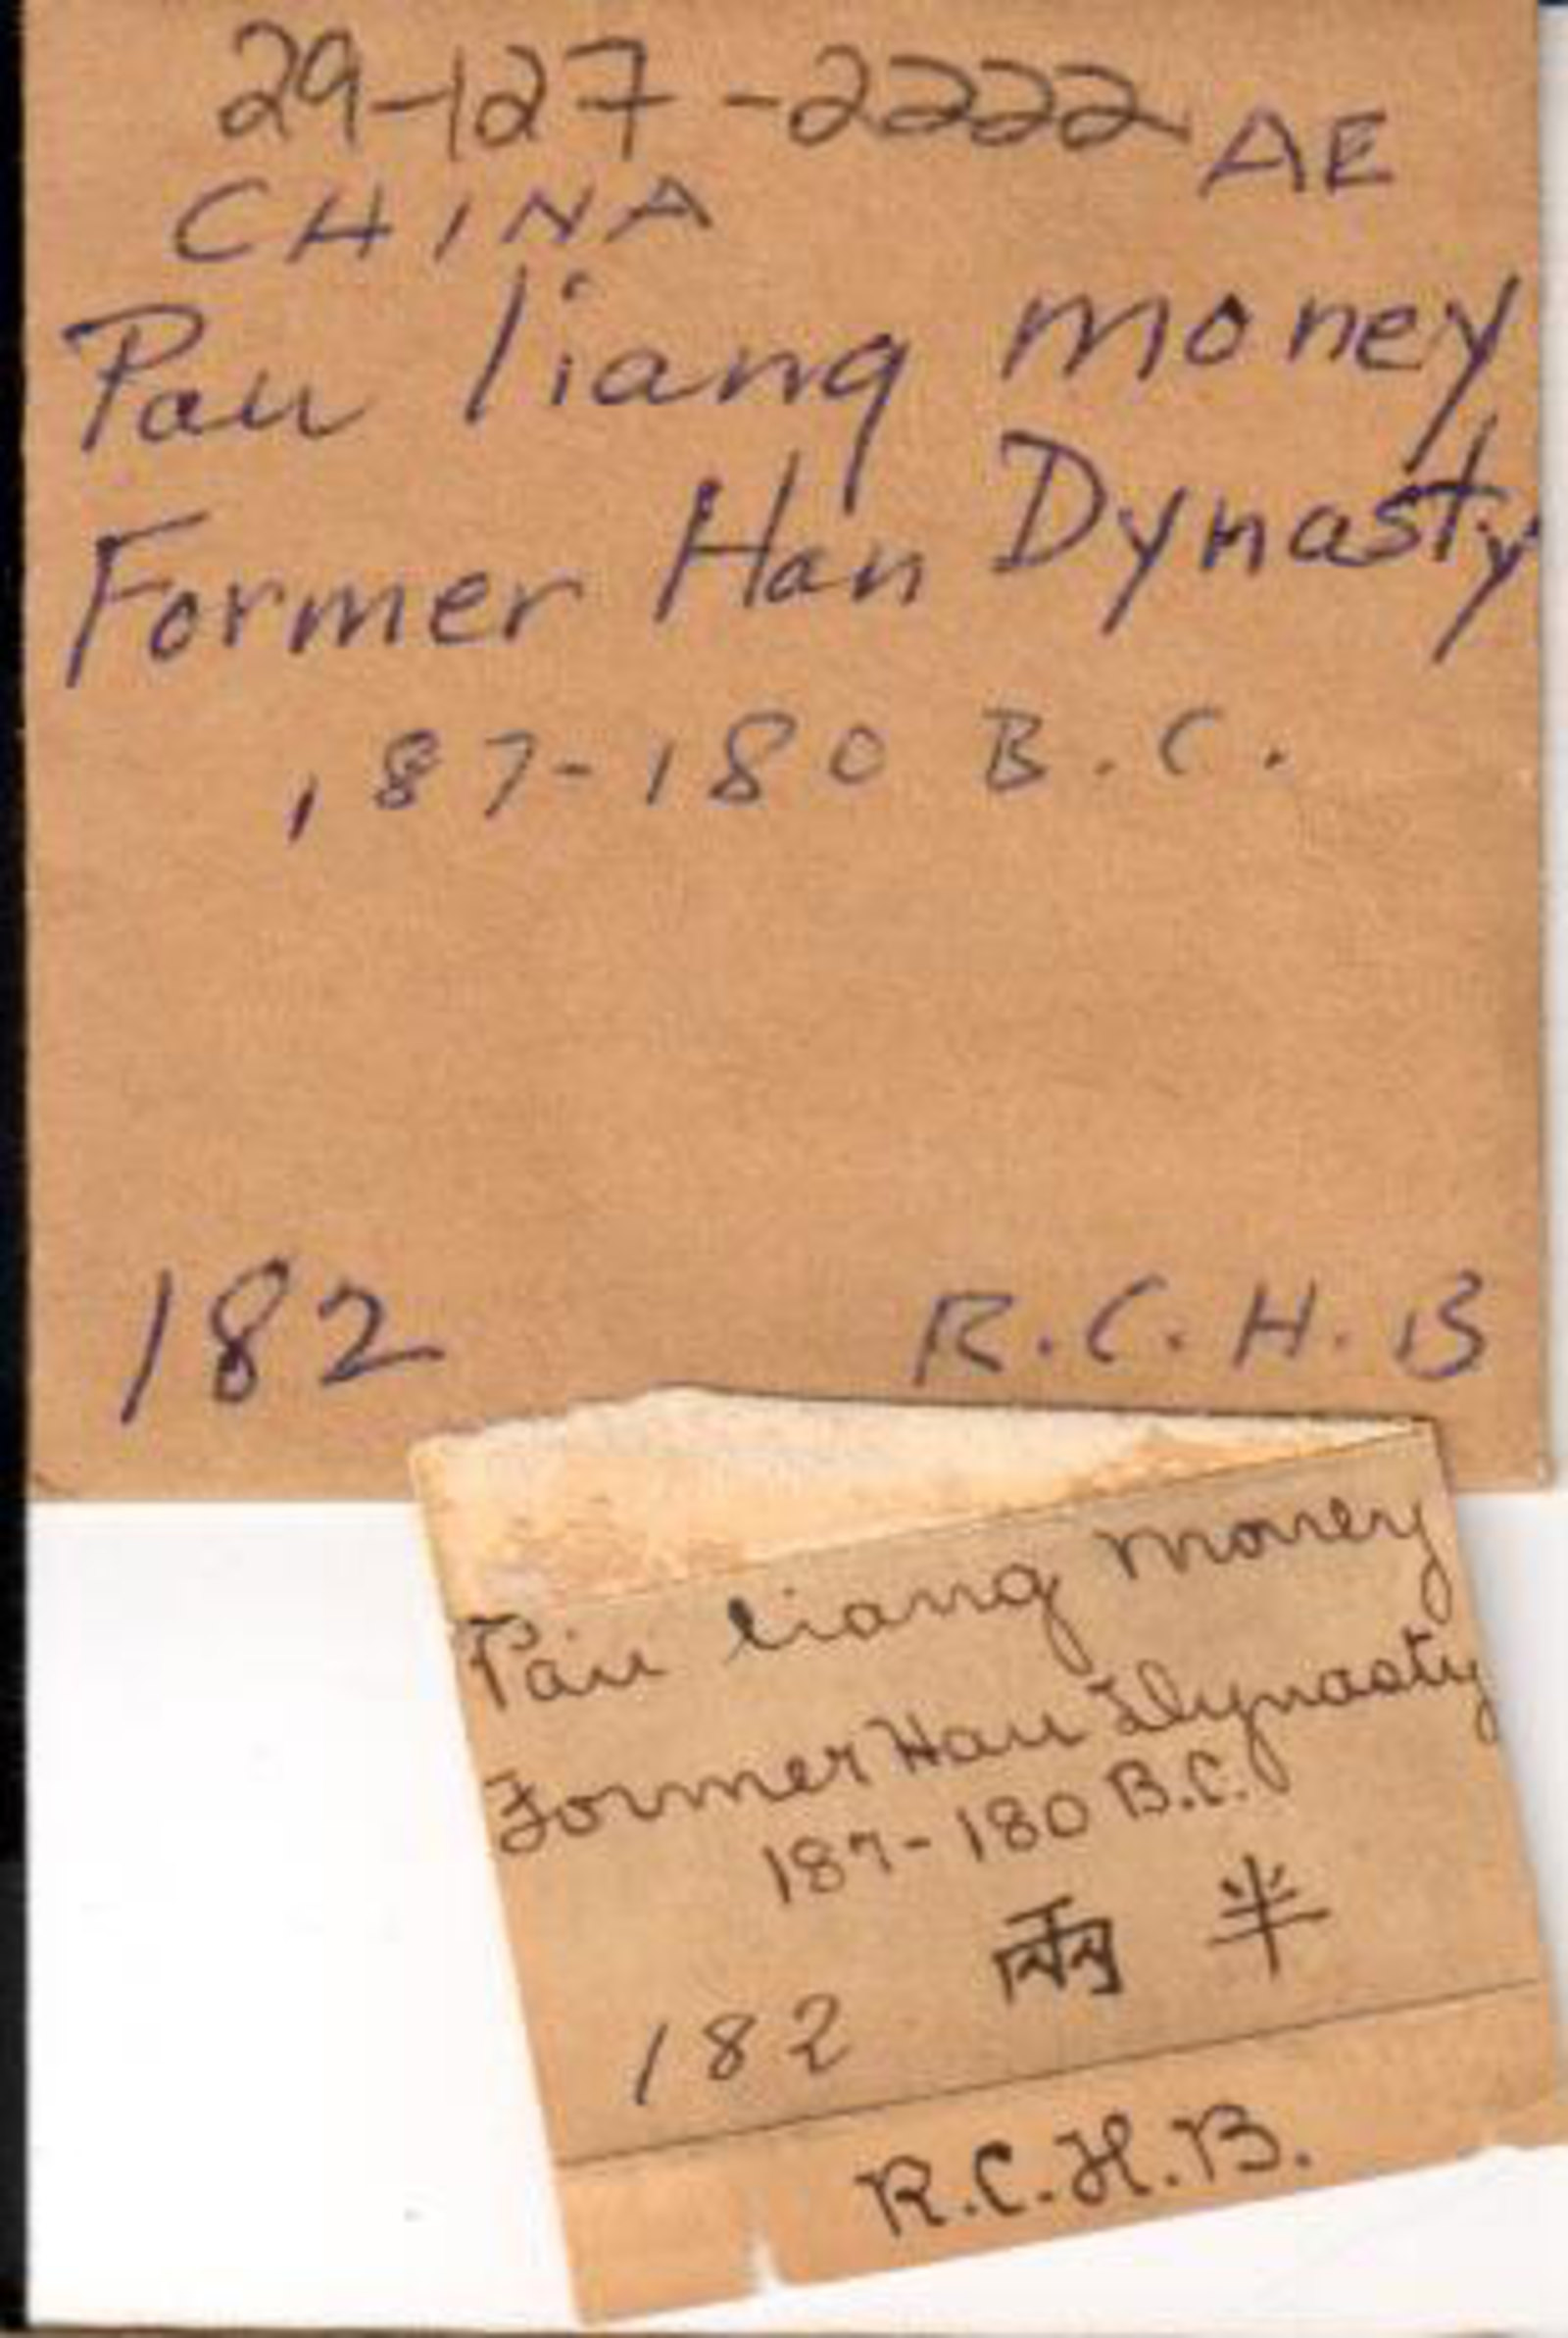 29-127-2222 AE
CHINA
Pau liang money
Former Han Dynasty
187-180 B.C.
182 R.C.H.B
Pau liang money
Former Han Dynasty
187-180 B.C.
兩 半
182
R.C.H.B.